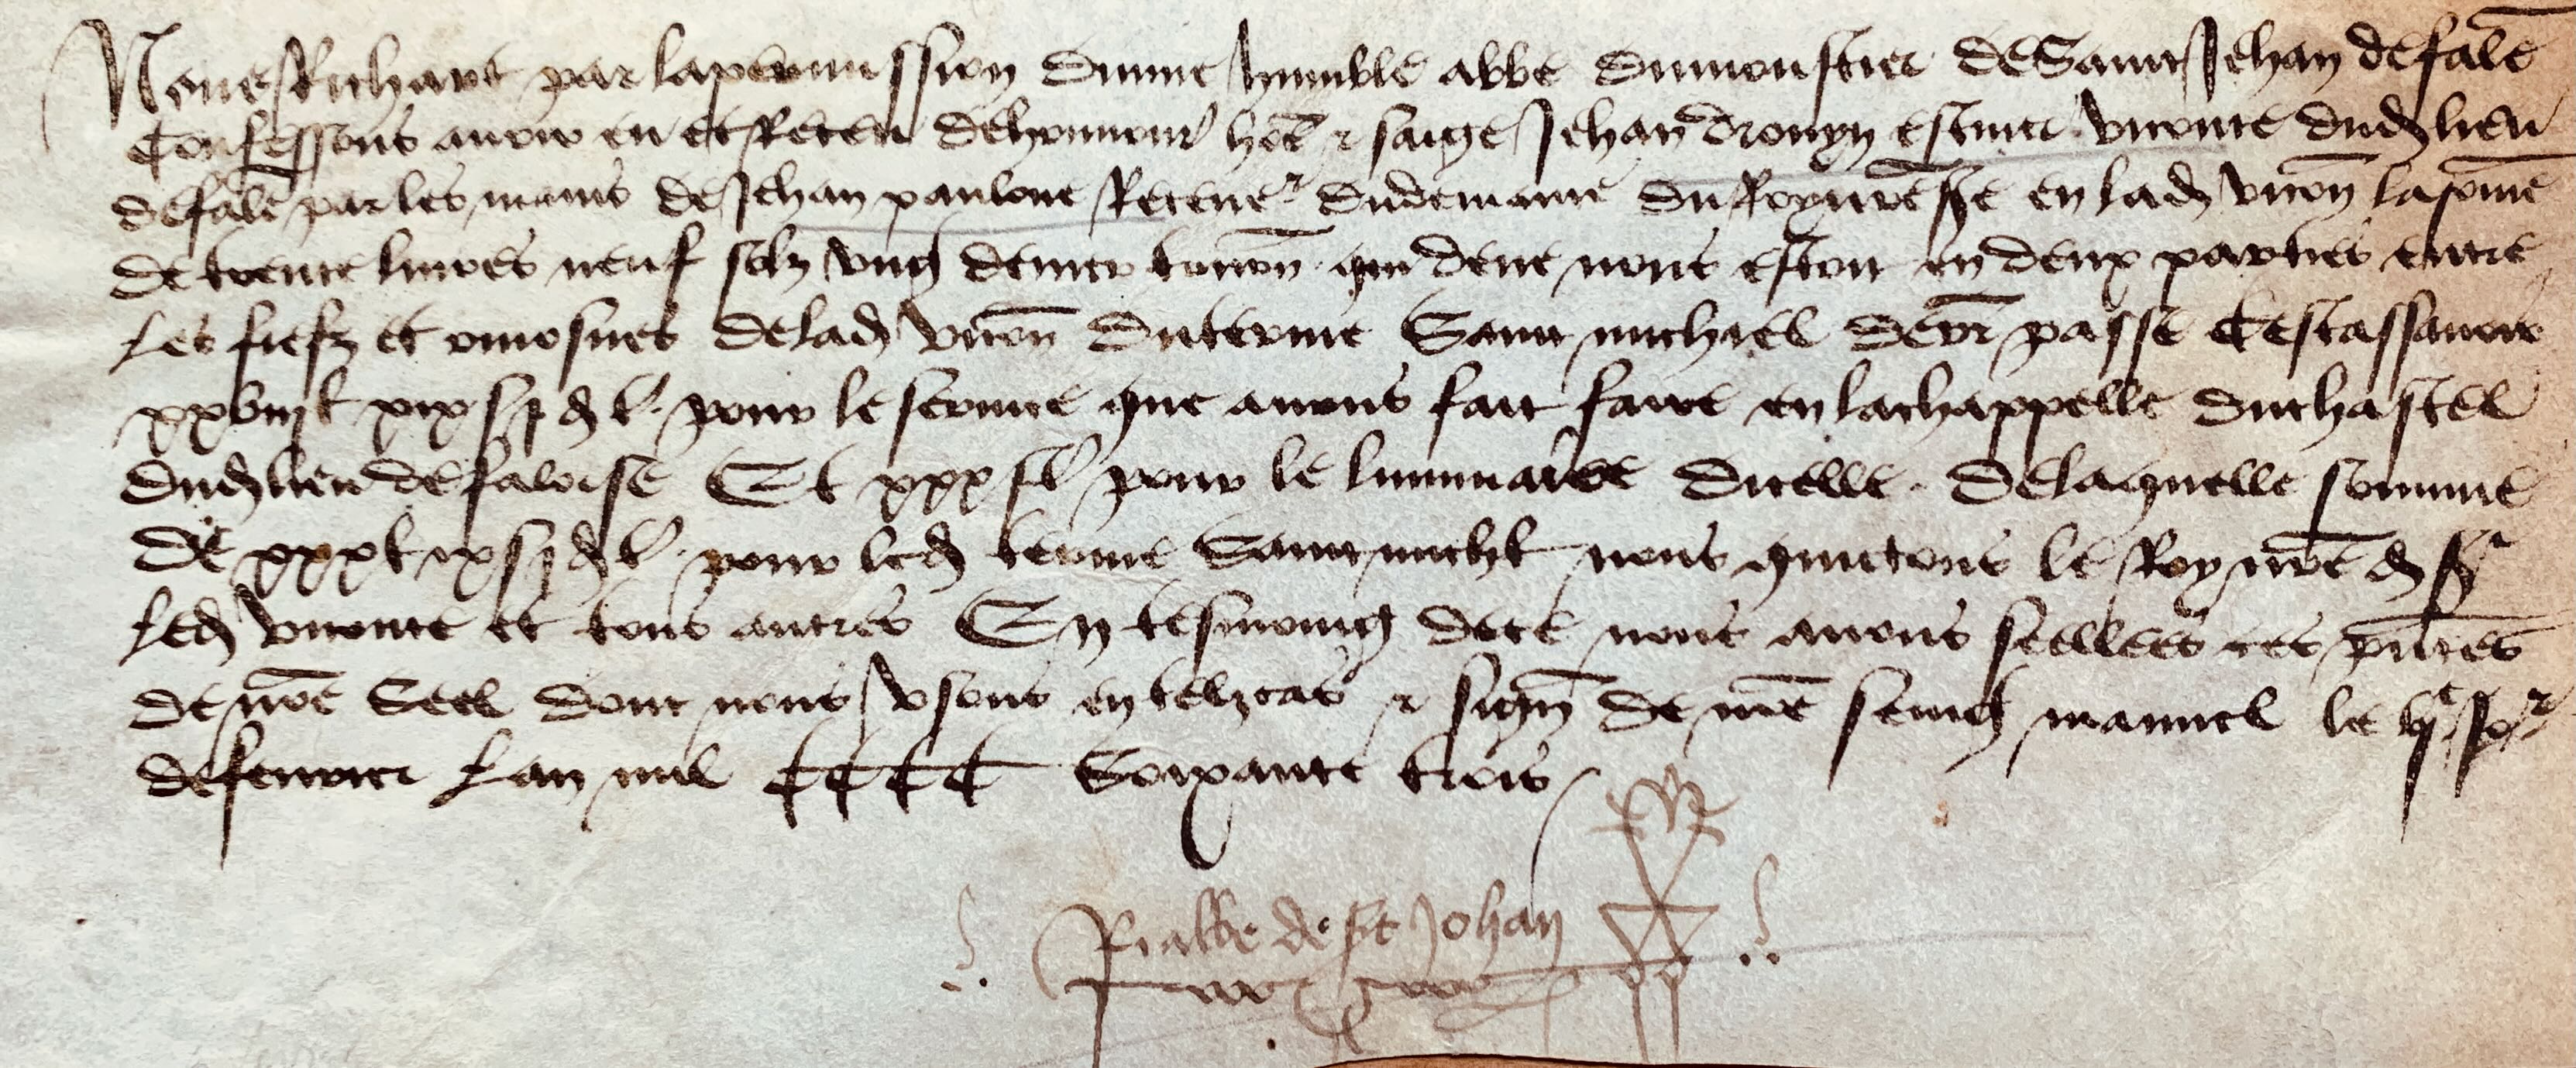 Nous Richart par la permission divine humble abbe du moustier de Saint Jehan de fale
Confessons avoir eu et Receu de honneur hoe & saige Jehan drouyn escuier viconte dud lieu
de fale par les mains de Jehan Recev du demaine du Roy nre sre en lad vicon la some
de trente livres neuf solz ung denier tourn qui deue nous estoit en deux parties entre
les fiefz et omosnes de lad vicon du terme Saint michiel derr passe Cestassavoir
xxviij l xix s j d t. pour le service que avons fait faire en la chappelle du chastel
dud lieu de faloise Et xxx s t pour le luminaire dicelle. De laquelle somme
de xxx l ix s j d t. pour led terme Saint michl nous quictons le Roy nre d sr
led viconte et tous autres En tesmoing de ce nous avons scellees ces pntes
de nre Seel dont nous usons en telz cas & sign de nre seing manuel le jor
de fevrier Lan mil CCCC Soixante trois
R abbe de st Johan